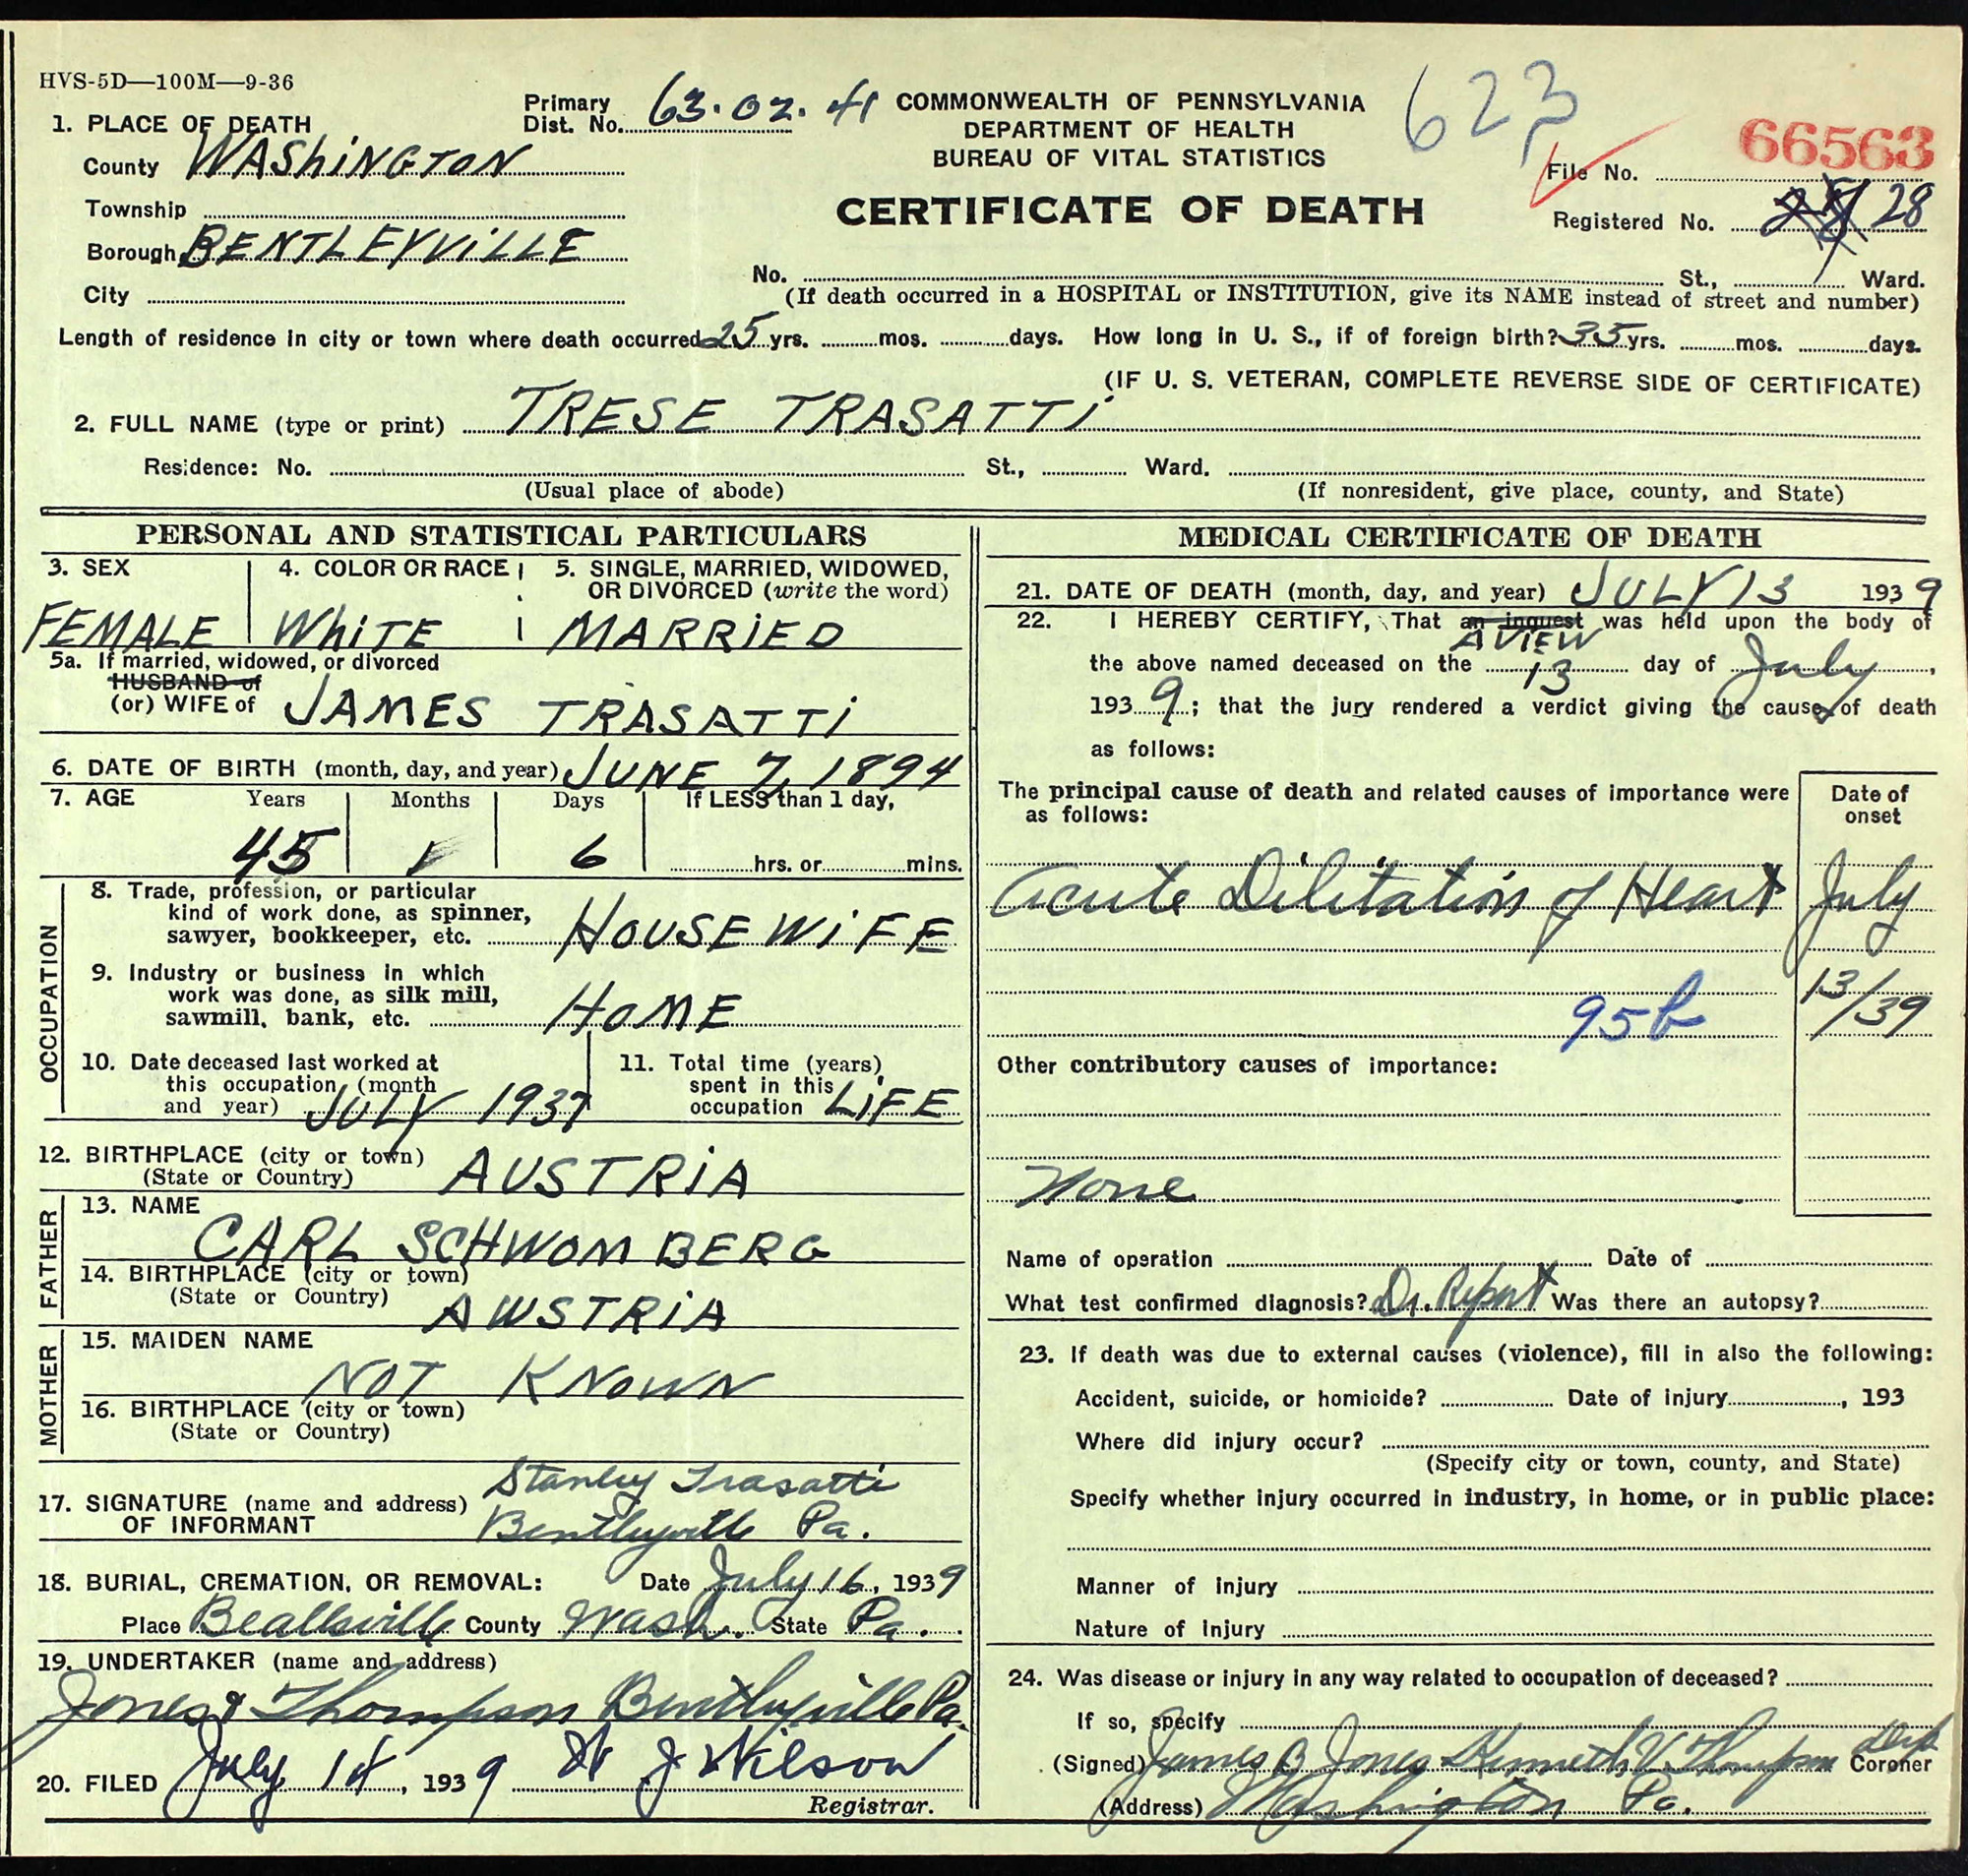 HVS-5D—100M—9-36
Primary Dist. No. 63.02.41
COMMONWEALTH OF PENNSYLVANIA
DEPARTMENT OF HEALTH
BUREAU OF VITAL STATISTICS
CERTIFICATE OF DEATH
623
File No. 66563
Registered No. 28
1. PLACE OF DEATH
County WASHINGTON
Township
Borough BENTLEYVILLE
City
No. St., Ward.
(If death occurred in a HOSPITAL or INSTITUTION, give its NAME instead of street and number)
Length of residence in city or town where death occurred 25 yrs. mos. days. How long in U. S., if of foreign birth? 35 yrs. mos. days.
(IF U. S. VETERAN, COMPLETE REVERSE SIDE OF CERTIFICATE)
2. FULL NAME (type or print) TRESE TRASATTI
Residence: No. St., Ward.
(Usual place of abode) (If nonresident, give place, county, and State)
PERSONAL AND STATISTICAL PARTICULARS
3. SEX 4. COLOR OR RACE 5. SINGLE, MARRIED, WIDOWED,
OR DIVORCED (write the word)
FEMALE WHITE MARRIED
5a. If married, widowed, or divorced
HUSBAND of
(or) WIFE of JAMES TRASATTI
6. DATE OF BIRTH (month, day, and year) JUNE 7, 1894
7. AGE Years Months Days If LESS than 1 day,
45 1 6 hrs. or mins.
OCCUPATION
8. Trade, profession, or particular
kind of work done, as spinner,
sawyer, bookkeeper, etc. HOUSEWIFE
9. Industry or business in which
work was done, as silk mill,
sawmill, bank, etc. HOME
10. Date deceased last worked at
this occupation (month
and year) JULY 1937
11. Total time (years)
spent in this
occupation LIFE
12. BIRTHPLACE (city or town)
(State or Country) AUSTRIA
FATHER
13. NAME
CARL SCHWOMBERG
14. BIRTHPLACE (city or town)
(State or Country) AWSTRIA
MOTHER
15. MAIDEN NAME
NOT KNOWN
16. BIRTHPLACE (city or town)
(State or Country)
17. SIGNATURE (name and address)
OF INFORMANT
Stanley Trasatti
Bentleyville Pa.
18. BURIAL, CREMATION, OR REMOVAL: Date July 16, 1939
Place Beallsville County Wash. State Pa.
19. UNDERTAKER (name and address)
Jones & Thompson Bentleyville Pa.
20. FILED July 14, 1939 W J Wilson
Registrar.
MEDICAL CERTIFICATE OF DEATH
21. DATE OF DEATH (month, day, and year) JULY 13 1939
22. I HEREBY CERTIFY, That an inquest was held upon the body of
A VIEW
the above named deceased on the 13 day of July,
1939; that the jury rendered a verdict giving the cause of death
as follows:
The principal cause of death and related causes of importance were
as follows:
Date of
onset
Acute Dilitation of Heart July
13/39
95b
Other contributory causes of importance:
None
Name of operation Date of
What test confirmed diagnosis? Dr. Report Was there an autopsy?
23. If death was due to external causes (violence), fill in also the following:
Accident, suicide, or homicide? Date of injury , 193
Where did injury occur?
(Specify city or town, county, and State)
Specify whether injury occurred in industry, in home, or in public place:
Manner of injury
Nature of injury
24. Was disease or injury in any way related to occupation of deceased?
If so, specify
(Signed) James B Jones Kenneth V. Thompson Dep Coroner
(Address) Washington Pa.